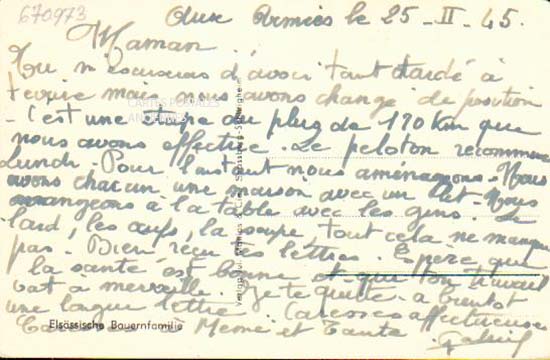 670973
Aux Armées le 25-II-45.
Maman.
Tu m'excuseras d'avoir tant tardé à
t'ecrire mais nous avons changé de position
- C'est une étape de plus de 170 Km que
nous avons effectué. Le peloton recommence
Lundi. Pour l'instant nous aménageons. Nous
avons chacun une maison avec un lit. Nous
mangeons à la table avec les gens. Le
lard, les oeufs, la soupe, tout cela ne manque
pas. Bien reçu tes lettres. Espère que
la santé est bonne et que ton travail
vat a merveille. Je te quitte. a bientot
une longue lettre. Caresses affectueuses
Caresses à Mémé et Tante.
CARTES POSTALES
ANCIENNES
Elsässische Bauernfamilie